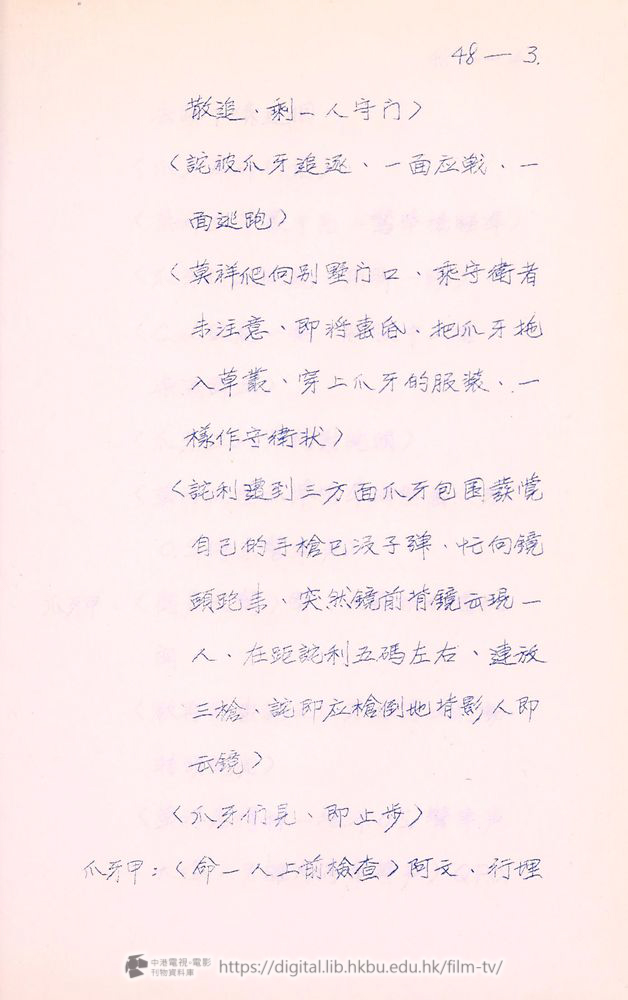 48 — 3.
散追、剩一人守门）
（詫被爪牙追逐、一面应戦、一
面逃跑）
（莫祥爬向别墅门口、乘守衛者
未注意、即将擊昏、把爪牙拖
入草叢、穿上爪牙的服装、一
樣作守衛状）
（詫利遭到三方面爪牙包围發觉
自己的手槍已没子弹、忙向镜
頭跑来、突然镜前背鏡云現一
人、在距詫利五碼左右、連放
三槍、詫即应槍倒地背影人即
云鏡）
（爪牙们見、即止步）
爪牙甲：（命一人上前檢查）阿文、行埋
中港電視・電影
刊物資料庫
https://digital.lib.hkbu.edu.hk/film-tv/